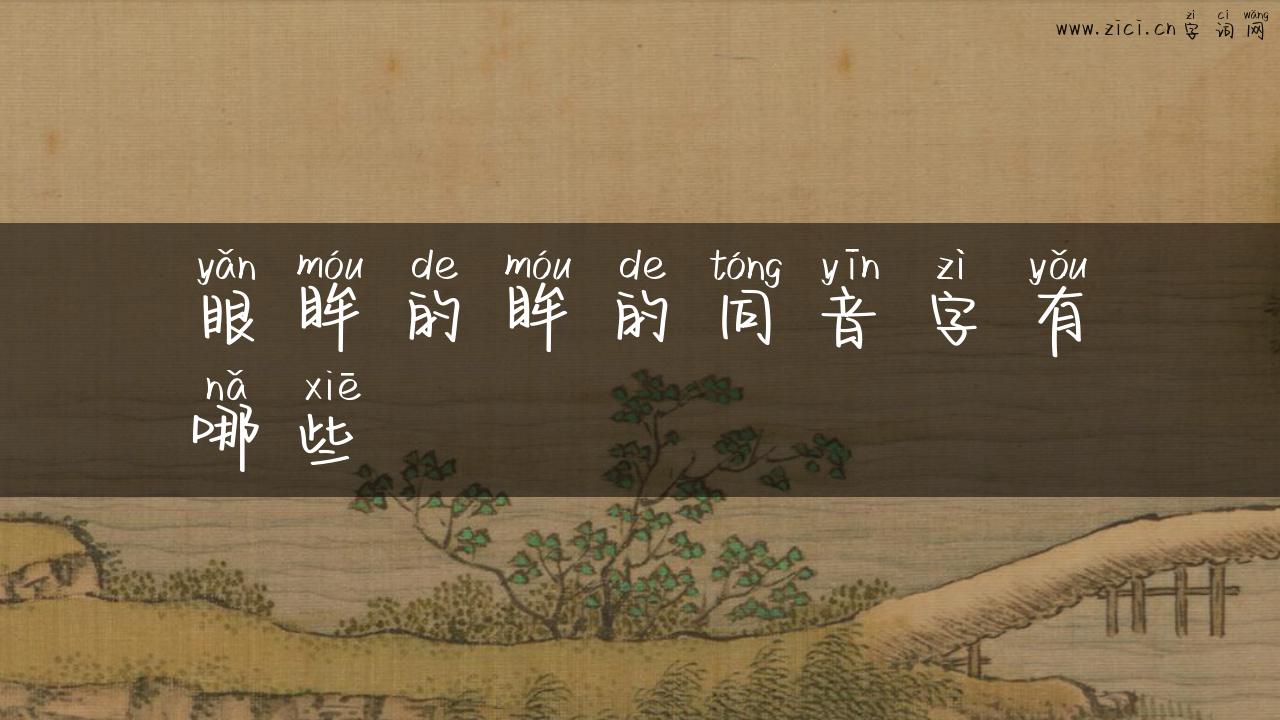 zì cí wǎng
www.zici.cn 字 词 网
yǎn móu de móu de tóng yīn zì yǒu
眼 眸 的 眸 的 同 音 字 有
nǎ xiē
哪 些